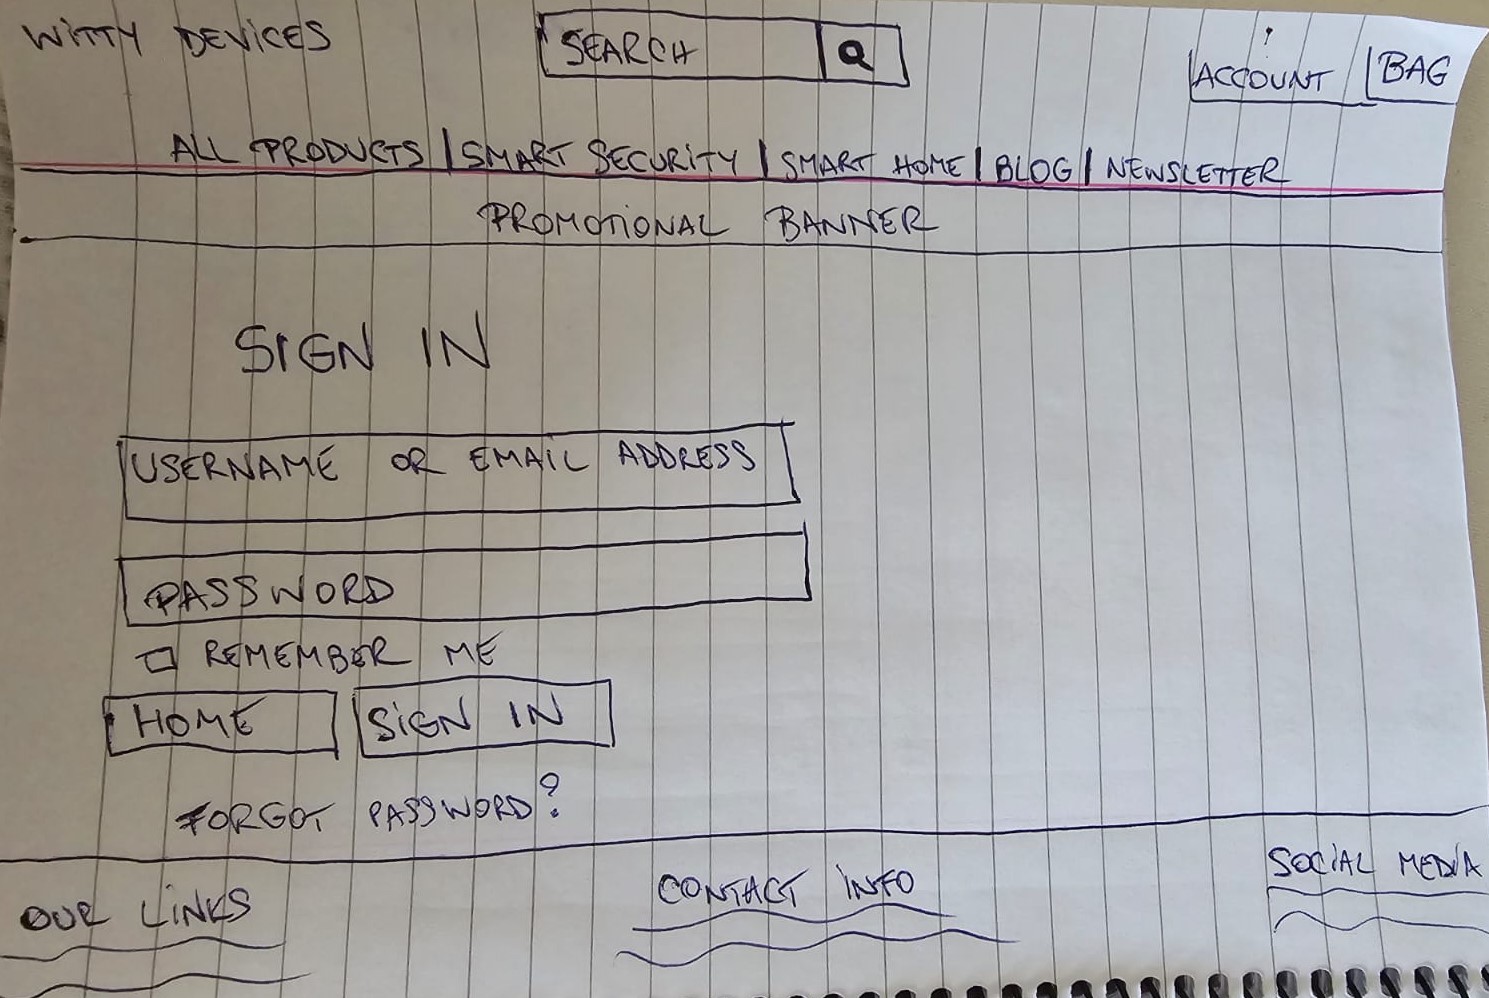 WITTY DEVICES
SEARCH
ACCOUNT
BAG
ALL PRODUCTS | SMART SECURITY | SMART HOME | BLOG | NEWSLETTER
PROMOTIONAL BANNER
SIGN IN
USERNAME OR EMAIL ADDRESS
PASSWORD
REMEMBER ME
HOME
SIGN IN
FORGOT PASSWORD?
OUR LINKS
CONTACT INFO
SOCIAL MEDIA